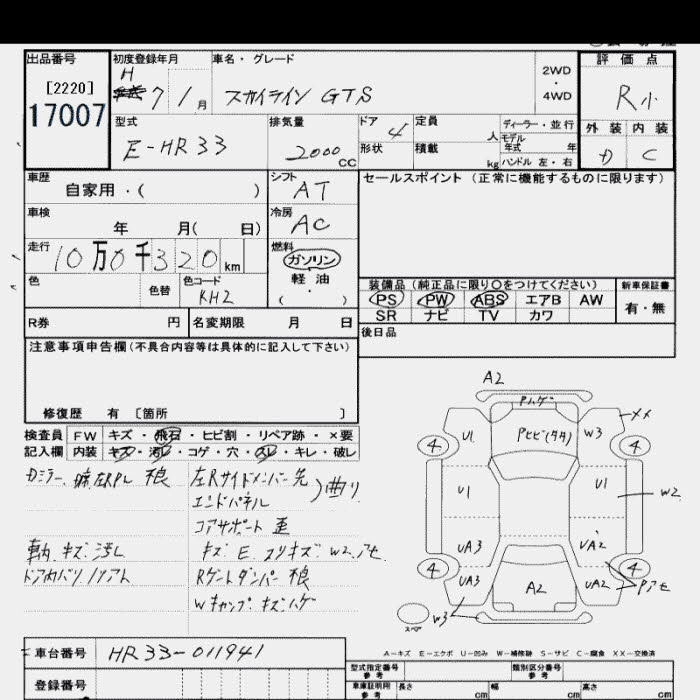 出品番号
[2220]
17007
初度登録年月
H 7 / 1月
車名・グレード
スカイライン GTS
2WD
・
4WD
評価点
R小
外装 内装
D C
型式
E-HR33
排気量
2000 CC
ドア
4
形状
定員
人
積載
kg
ディーラー・並行
モデル
年式 年
ハンドル 左・右
車歴
自家用・( )
シフト
AT
セールスポイント (正常に機能するものに限ります)
車検
年 月( 日)
冷房
AC
走行
10万0千320km
燃料
ガソリン
軽油
( )
色
色替
色コード
KH2
装備品 (純正品に限り〇をつけてください)
新車保証書
PS PW ABS エアB AW
SR ナビ TV カワ
有・無
R券 円
名変期限 月 日
後日品
注意事項申告欄(不具合内容等は具体的に記入して下さい)
修復歴 有 〔箇所 〕
検査員
記入欄
FW キズ・飛石・ヒビ割・リペア跡・×要
内装 キズ・汚レ・コゲ・穴・スレ・キレ・破レ
左Rサイドメンバー先
エンドパネル
曲り
コアサポート 歪
車内 キズ 汚レ
キズ E スリキズ W2 アセ
ドア内バリ
Rゲートダンパー
Wキャップ キズハゲ
A2
Pハゲ
U1
Pヒビ(タタ)
W3
XX
4
4
U1
U1
W2
UA3
UA2
4
4
UA3
A2
UA2
Pアセ
W3
スペア
A-キズ E-エクボ U-凹み W-補修跡 S-サビ C-腐食 XX-交換済
車台番号
HR33-011941
登録番号
型式指定番号
参考
類別区分番号
参考
車庫証明用
参考
長さ cm
幅 cm
高さ cm